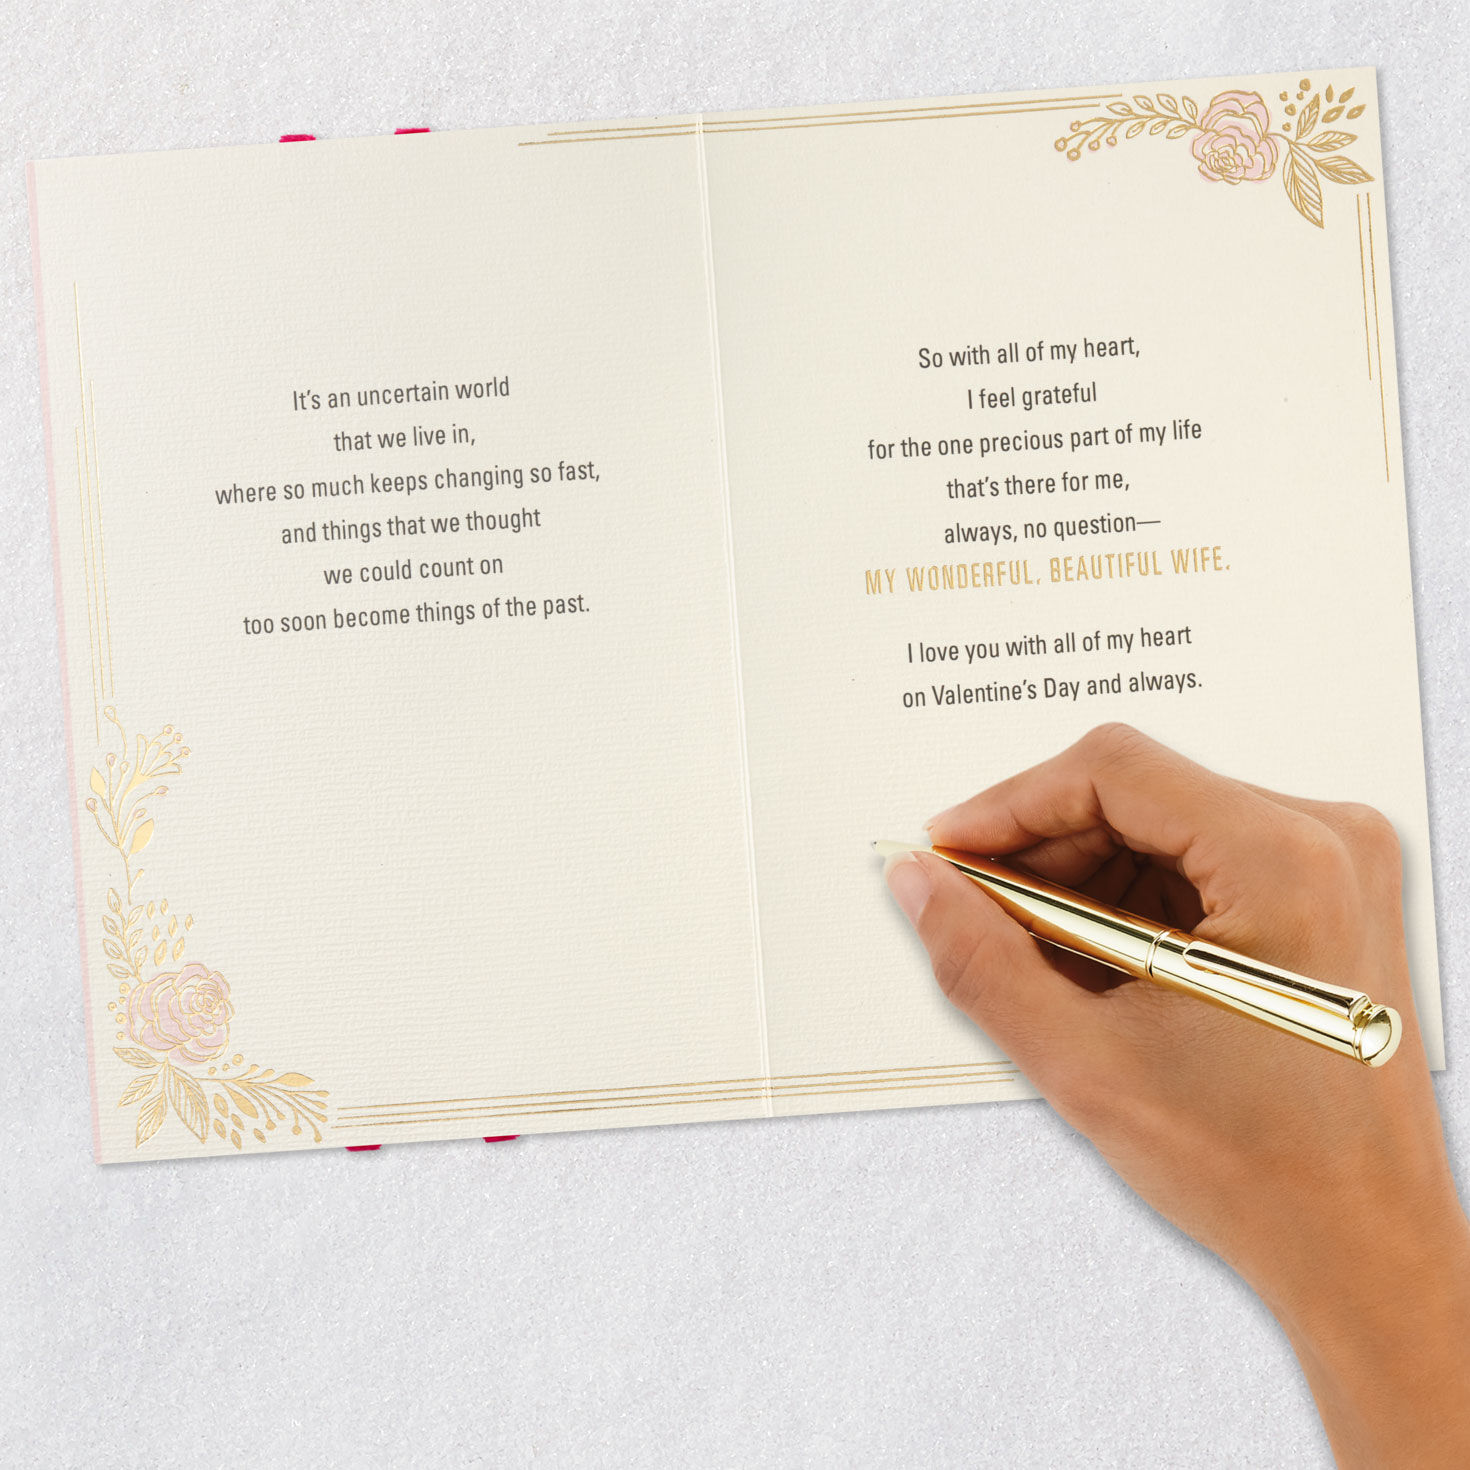 It's an uncertain world
that we live in,
where so much keeps changing so fast,
and things that we thought
we could count on
too soon become things of the past.
So with all of my heart,
I feel grateful
for the one precious part of my life
that's there for me,
always, no question—
MY WONDERFUL, BEAUTIFUL WIFE.
I love you with all of my heart
on Valentine's Day and always.